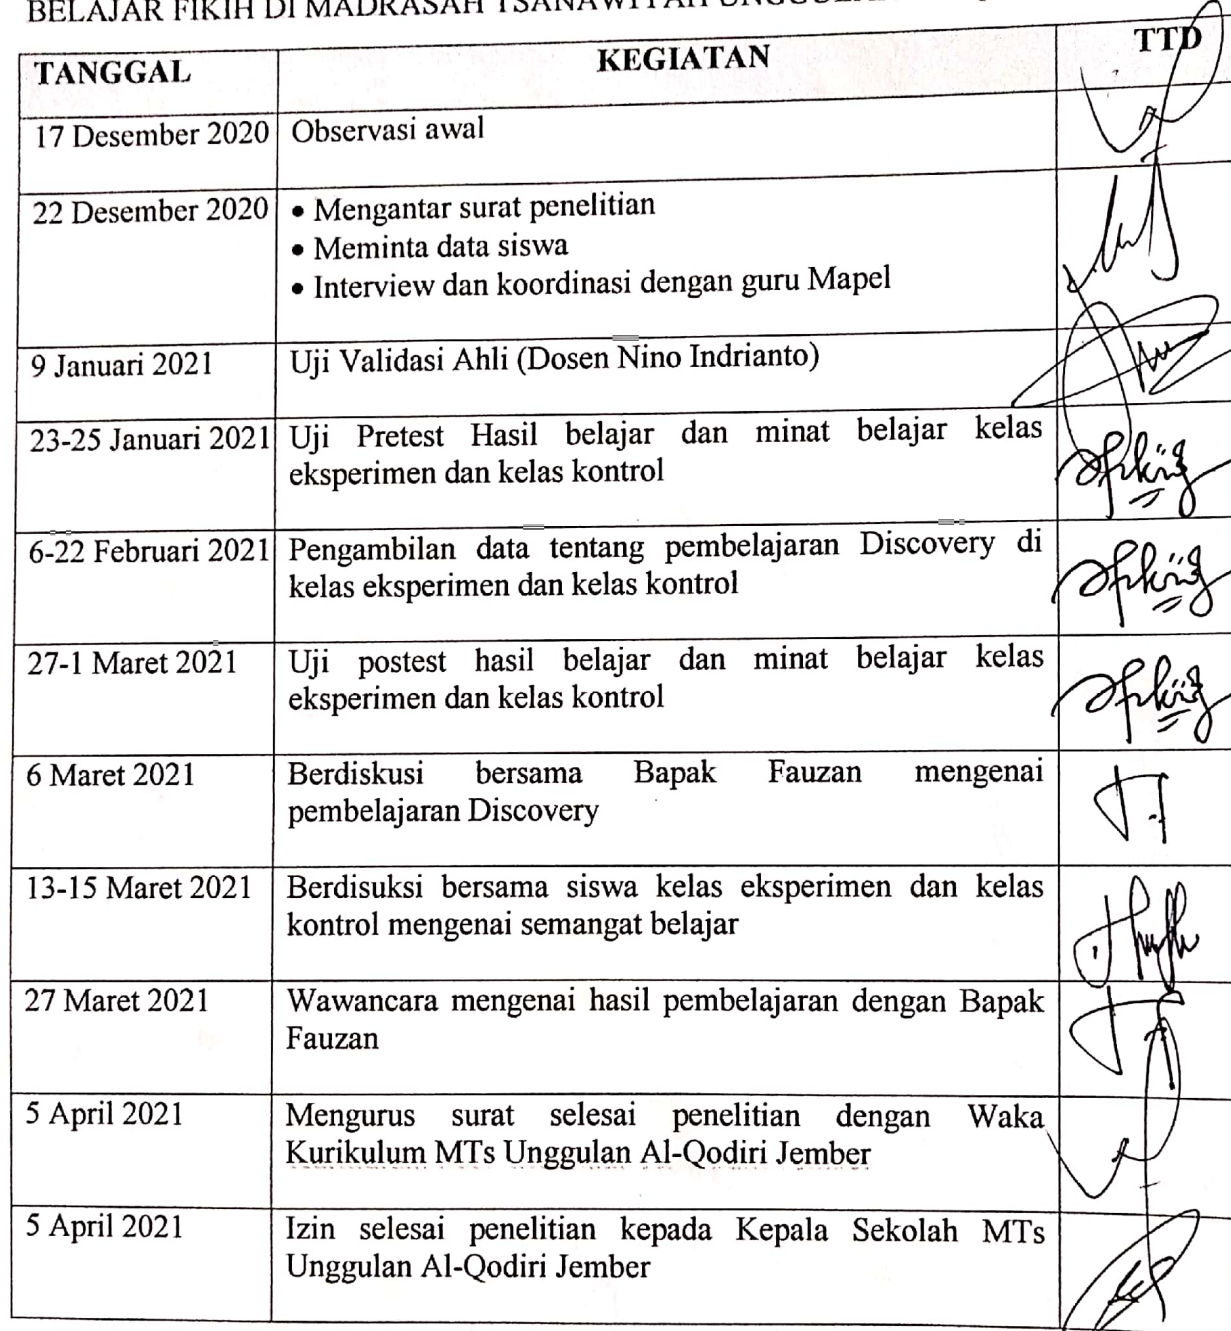 BELAJAR FIKIH DI MADRASAH TSANAWIYAH
TANGGAL KEGIATAN TTD
17 Desember 2020 Observasi awal
22 Desember 2020 • Mengantar surat penelitian
• Meminta data siswa
• Interview dan koordinasi dengan guru Mapel
9 Januari 2021 Uji Validasi Ahli (Dosen Nino Indrianto)
23-25 Januari 2021 Uji Pretest Hasil belajar dan minat belajar kelas
eksperimen dan kelas kontrol
6-22 Februari 2021 Pengambilan data tentang pembelajaran Discovery di
kelas eksperimen dan kelas kontrol
27-1 Maret 2021 Uji postest hasil belajar dan minat belajar kelas
eksperimen dan kelas kontrol
6 Maret 2021 Berdiskusi bersama Bapak Fauzan mengenai
pembelajaran Discovery
13-15 Maret 2021 Berdisuksi bersama siswa kelas eksperimen dan kelas
kontrol mengenai semangat belajar
27 Maret 2021 Wawancara mengenai hasil pembelajaran dengan Bapak
Fauzan
5 April 2021 Mengurus surat selesai penelitian dengan Waka
Kurikulum MTs Unggulan Al-Qodiri Jember
5 April 2021 Izin selesai penelitian kepada Kepala Sekolah MTs
Unggulan Al-Qodiri Jember